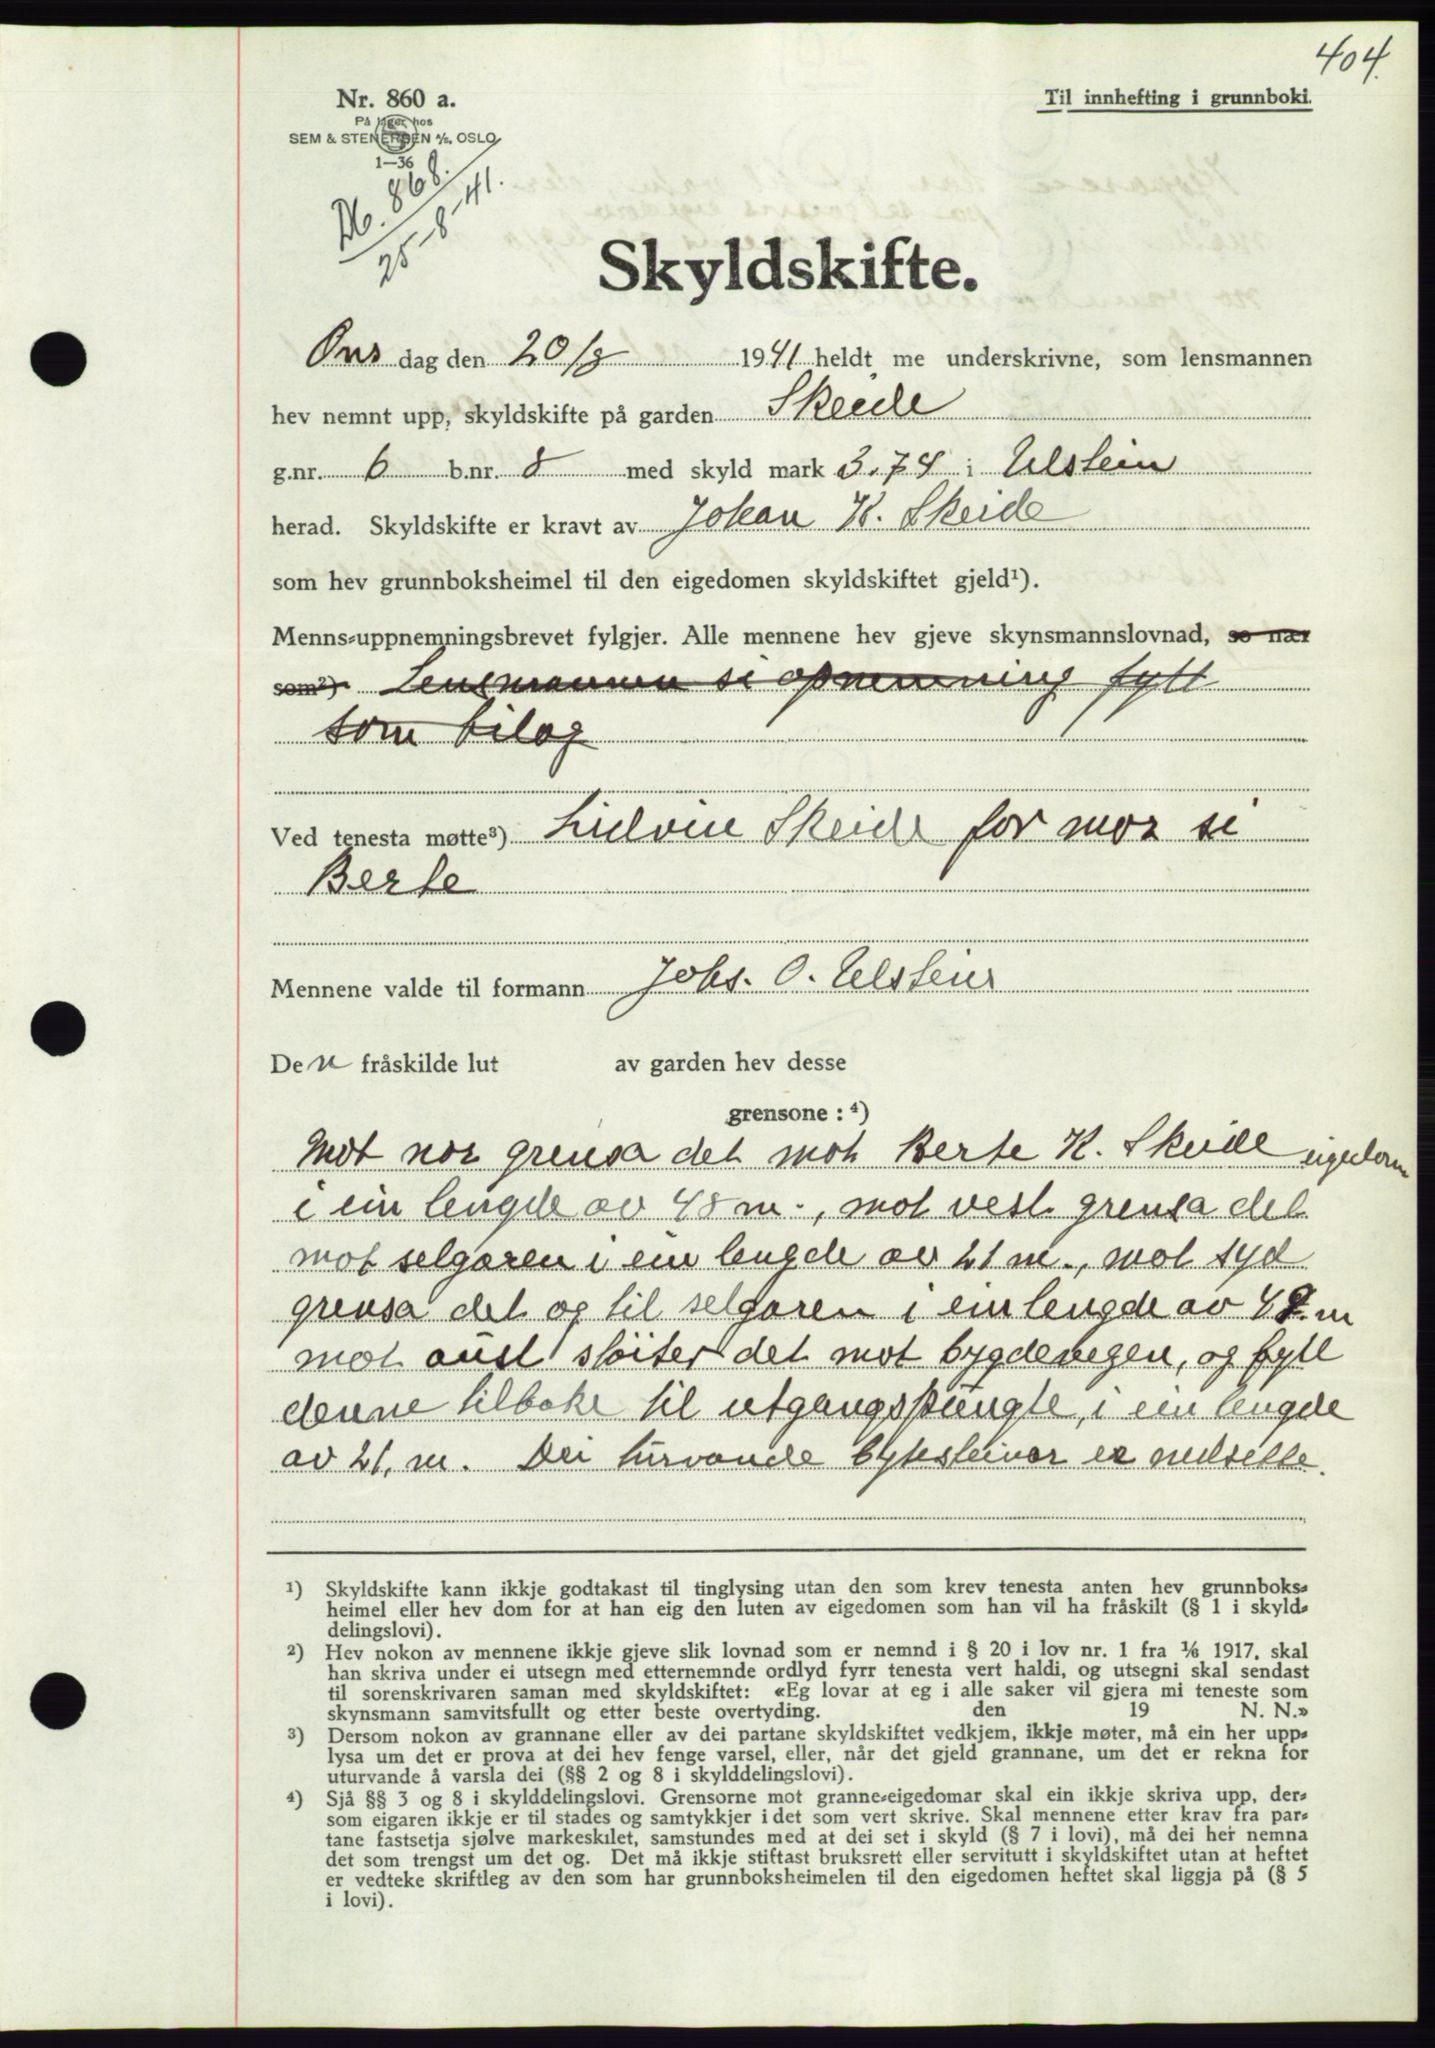 404.
Nr. 860 a.
Til innhefting i grunnboki.
På lager hos
SEM & STENERSEN A/S, OSLO
1—36
Db. 868.
25-8-41.
Skyldskifte.
Ons dag den 20/8 1941 heldt me underskrivne, som lensmannen
hev nemnt upp, skyldskifte på garden Skeide
g.nr. 6 b.nr. 8 med skyld mark 3.74 i Ulstein
herad. Skyldskifte er kravt av Johan K. Skeide
som hev grunnboksheimel til den eigedomen skyldskiftet gjeld¹).
Menns-uppnemningsbrevet fylgjer. Alle mennene hev gjeve skynsmannslovnad, so nær
som²) Lensmannen si opnemning fyll
som bilag
Ved tenesta møtte³) Lidvin Skeide for mor si
Berte
Mennene valde til formann Johs. O. Ulstein
Den fråskilde lut av garden hev desse
grensone : ⁴)
Mot nor grensa det mot Berte K. Skeide eigedom
i ein lengde av 48 m., mot vest grensa det
mot selgaren i ein lengde av 21 m., mot syd
grensa det og til selgaren i ein lengde av m
mot aust støiter det mot bygdevegen, og fyll
denne tilbake til utgangspungte, i ein lengde
av 21, m. Dei turvande bytesteinar er nedsette.
¹) Skyldskifte kann ikkje godtakast til tinglysing utan den som krev tenesta anten hev grunnboks-
heimel eller hev dom for at han eig den luten av eigedomen som han vil ha fråskilt (§ 1 i skyld-
delingslovi).
²) Hev nokon av mennene ikkje gjeve slik lovnad som er nemnd i § 20 i lov nr. 1 fra 1/6 1917, skal
han skriva under ei utsegn med etternemnde ordlyd fyrr tenesta vert haldi, og utsegni skal sendast
til sorenskrivaren saman med skyldskiftet: «Eg lovar at eg i alle saker vil gjera mi teneste som
skynsmann samvitsfullt og etter beste overtyding. den 19 N. N.»
³) Dersom nokon av grannane eller av dei partane skyldskiftet vedkjem, ikkje møter, må ein her upp-
lysa um det er prova at dei hev fenge varsel, eller, når det gjeld grannane, um det er rekna for
uturvande å varsla dei (§§ 2 og 8 i skylddelingslovi).
⁴) Sjå §§ 3 og 8 i skylddelingslovi. Grensorne mot granne-eigedomar skal ein ikkje skriva upp, der-
som eigaren ikkje er til stades og samtykkjer i det som vert skrive. Skal mennene etter krav fra par-
tane fastsetja sjølve markeskilet, samstundes med at dei set i skyld (§ 7 i lovi), må dei her nemna
det som trengst um det og. Det må ikkje stiftast bruksrett eller servitutt i skyldskiftet utan at heftet
er vedteke skriftleg av den som har grunnboksheimelen til den eigedomen heftet skal liggja på (§ 5
i lovi).